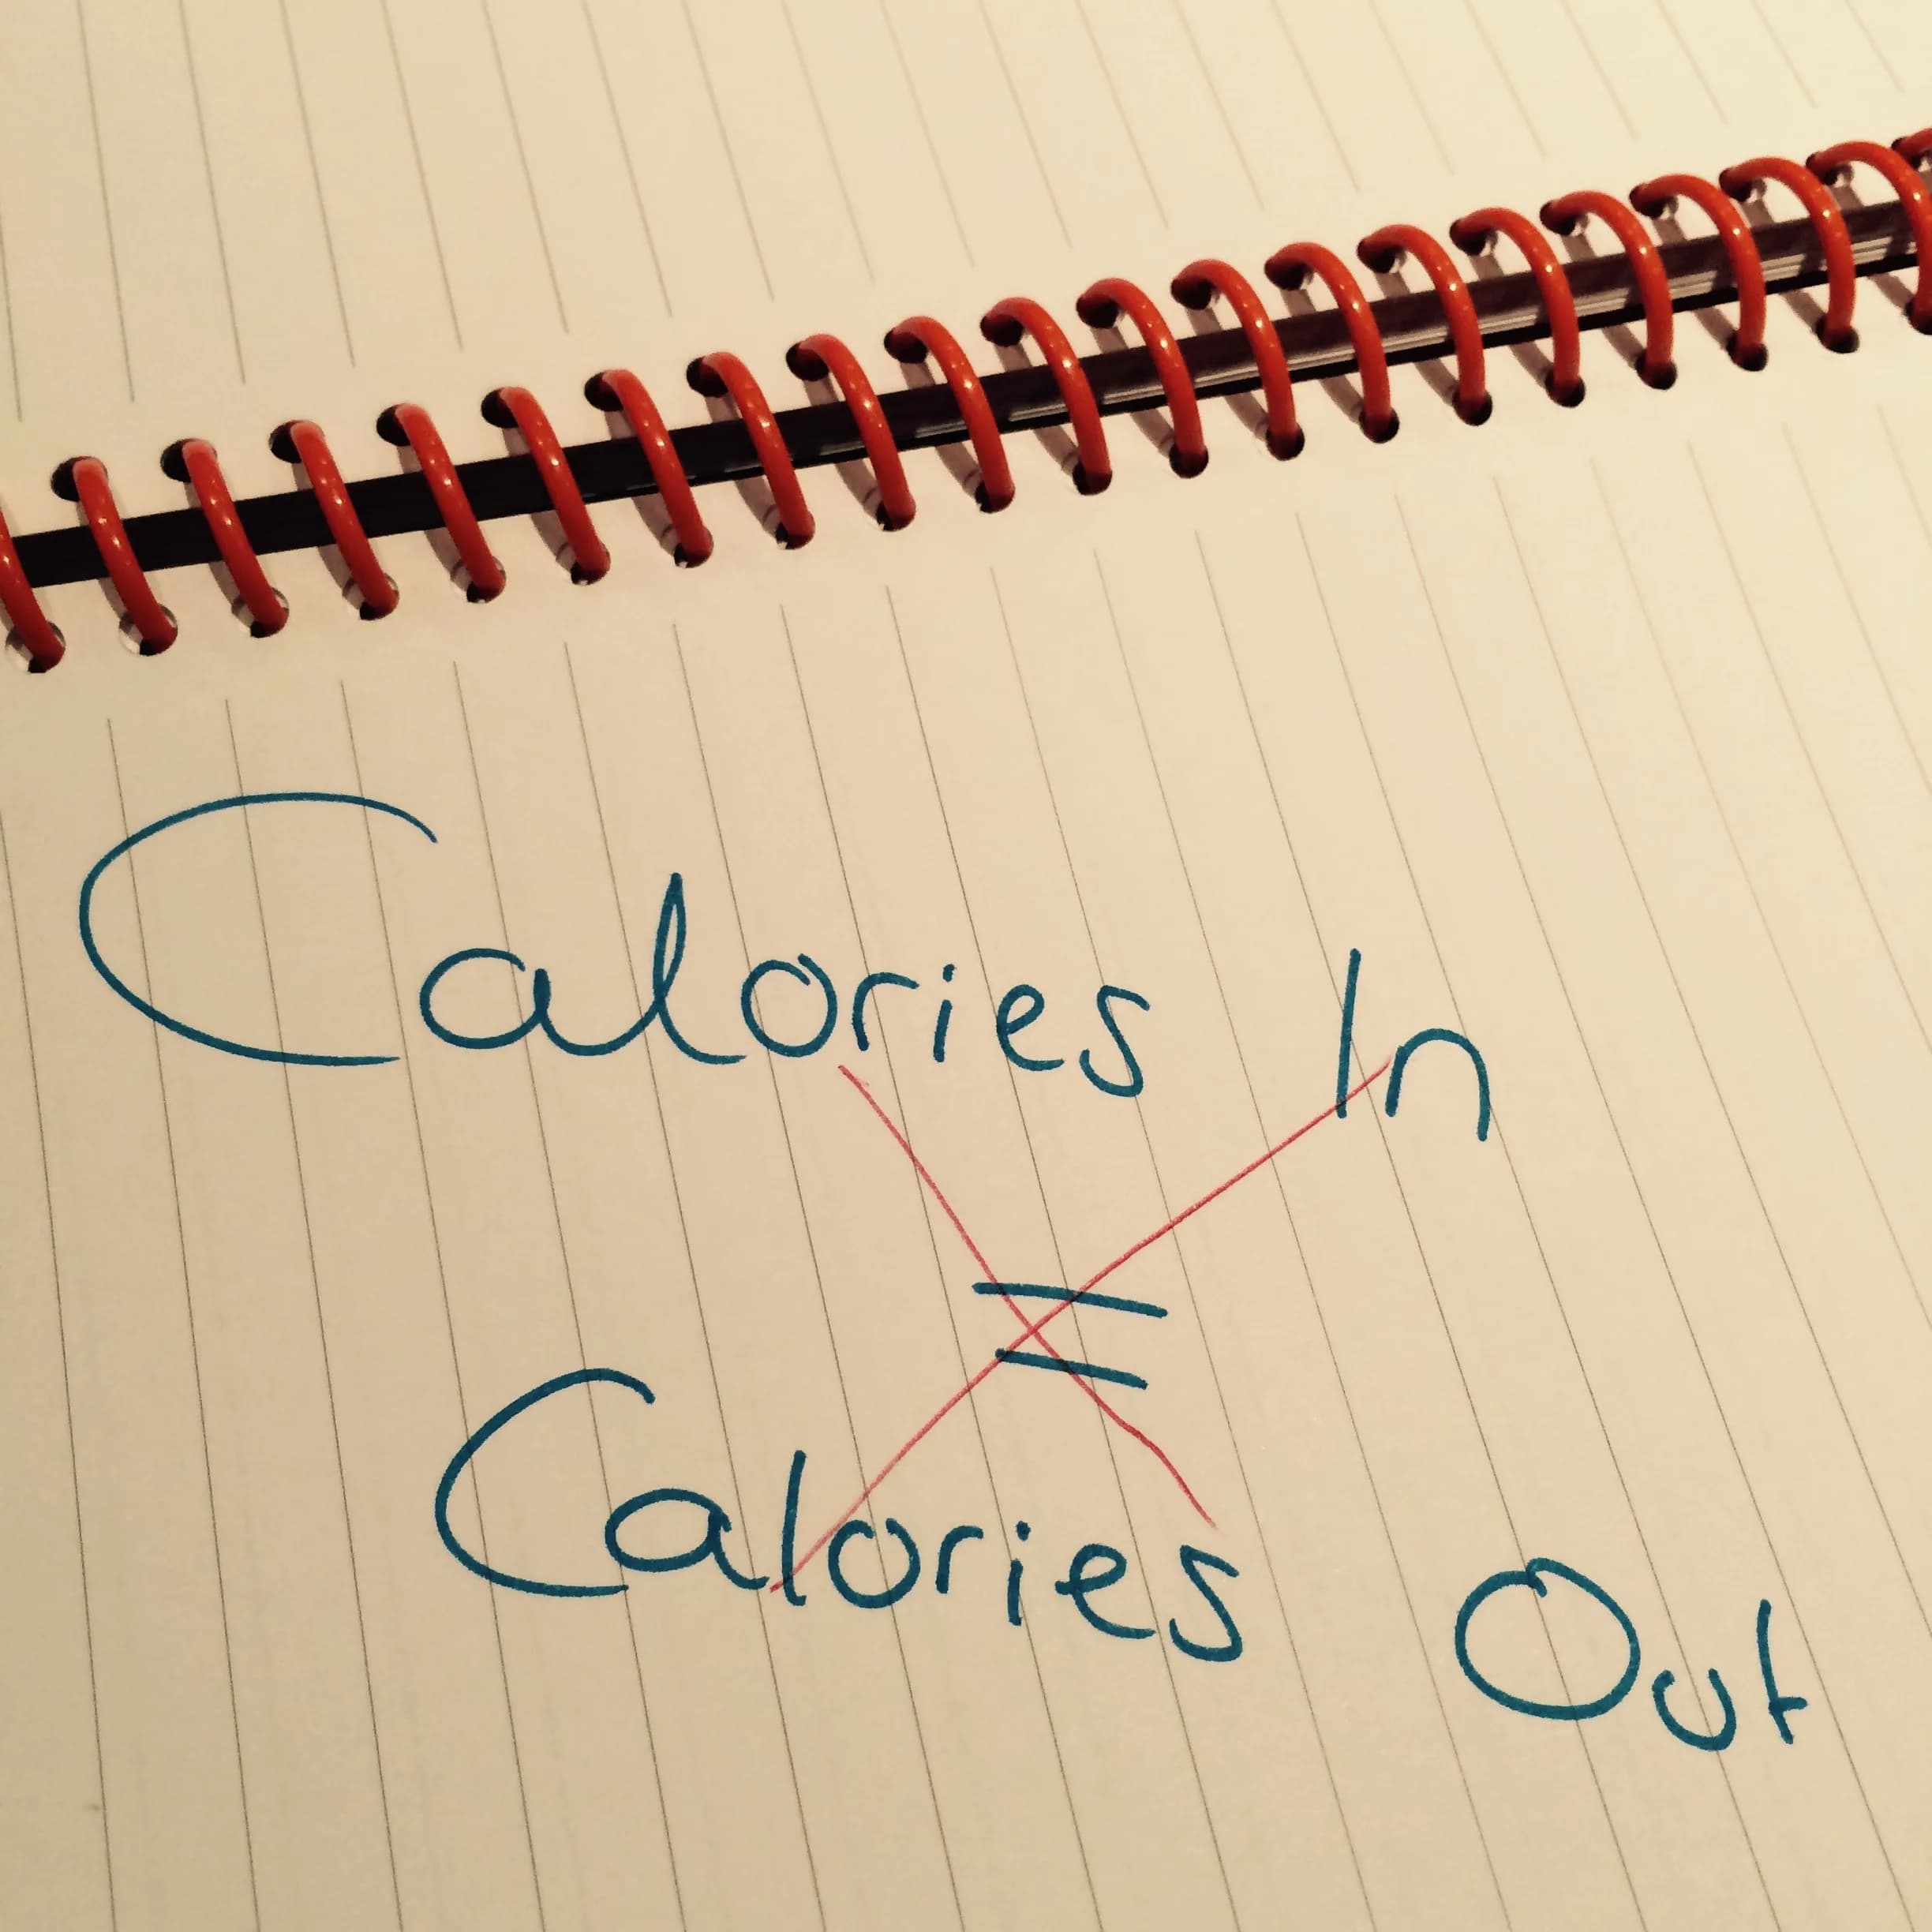 Calories In
=
Calories Out